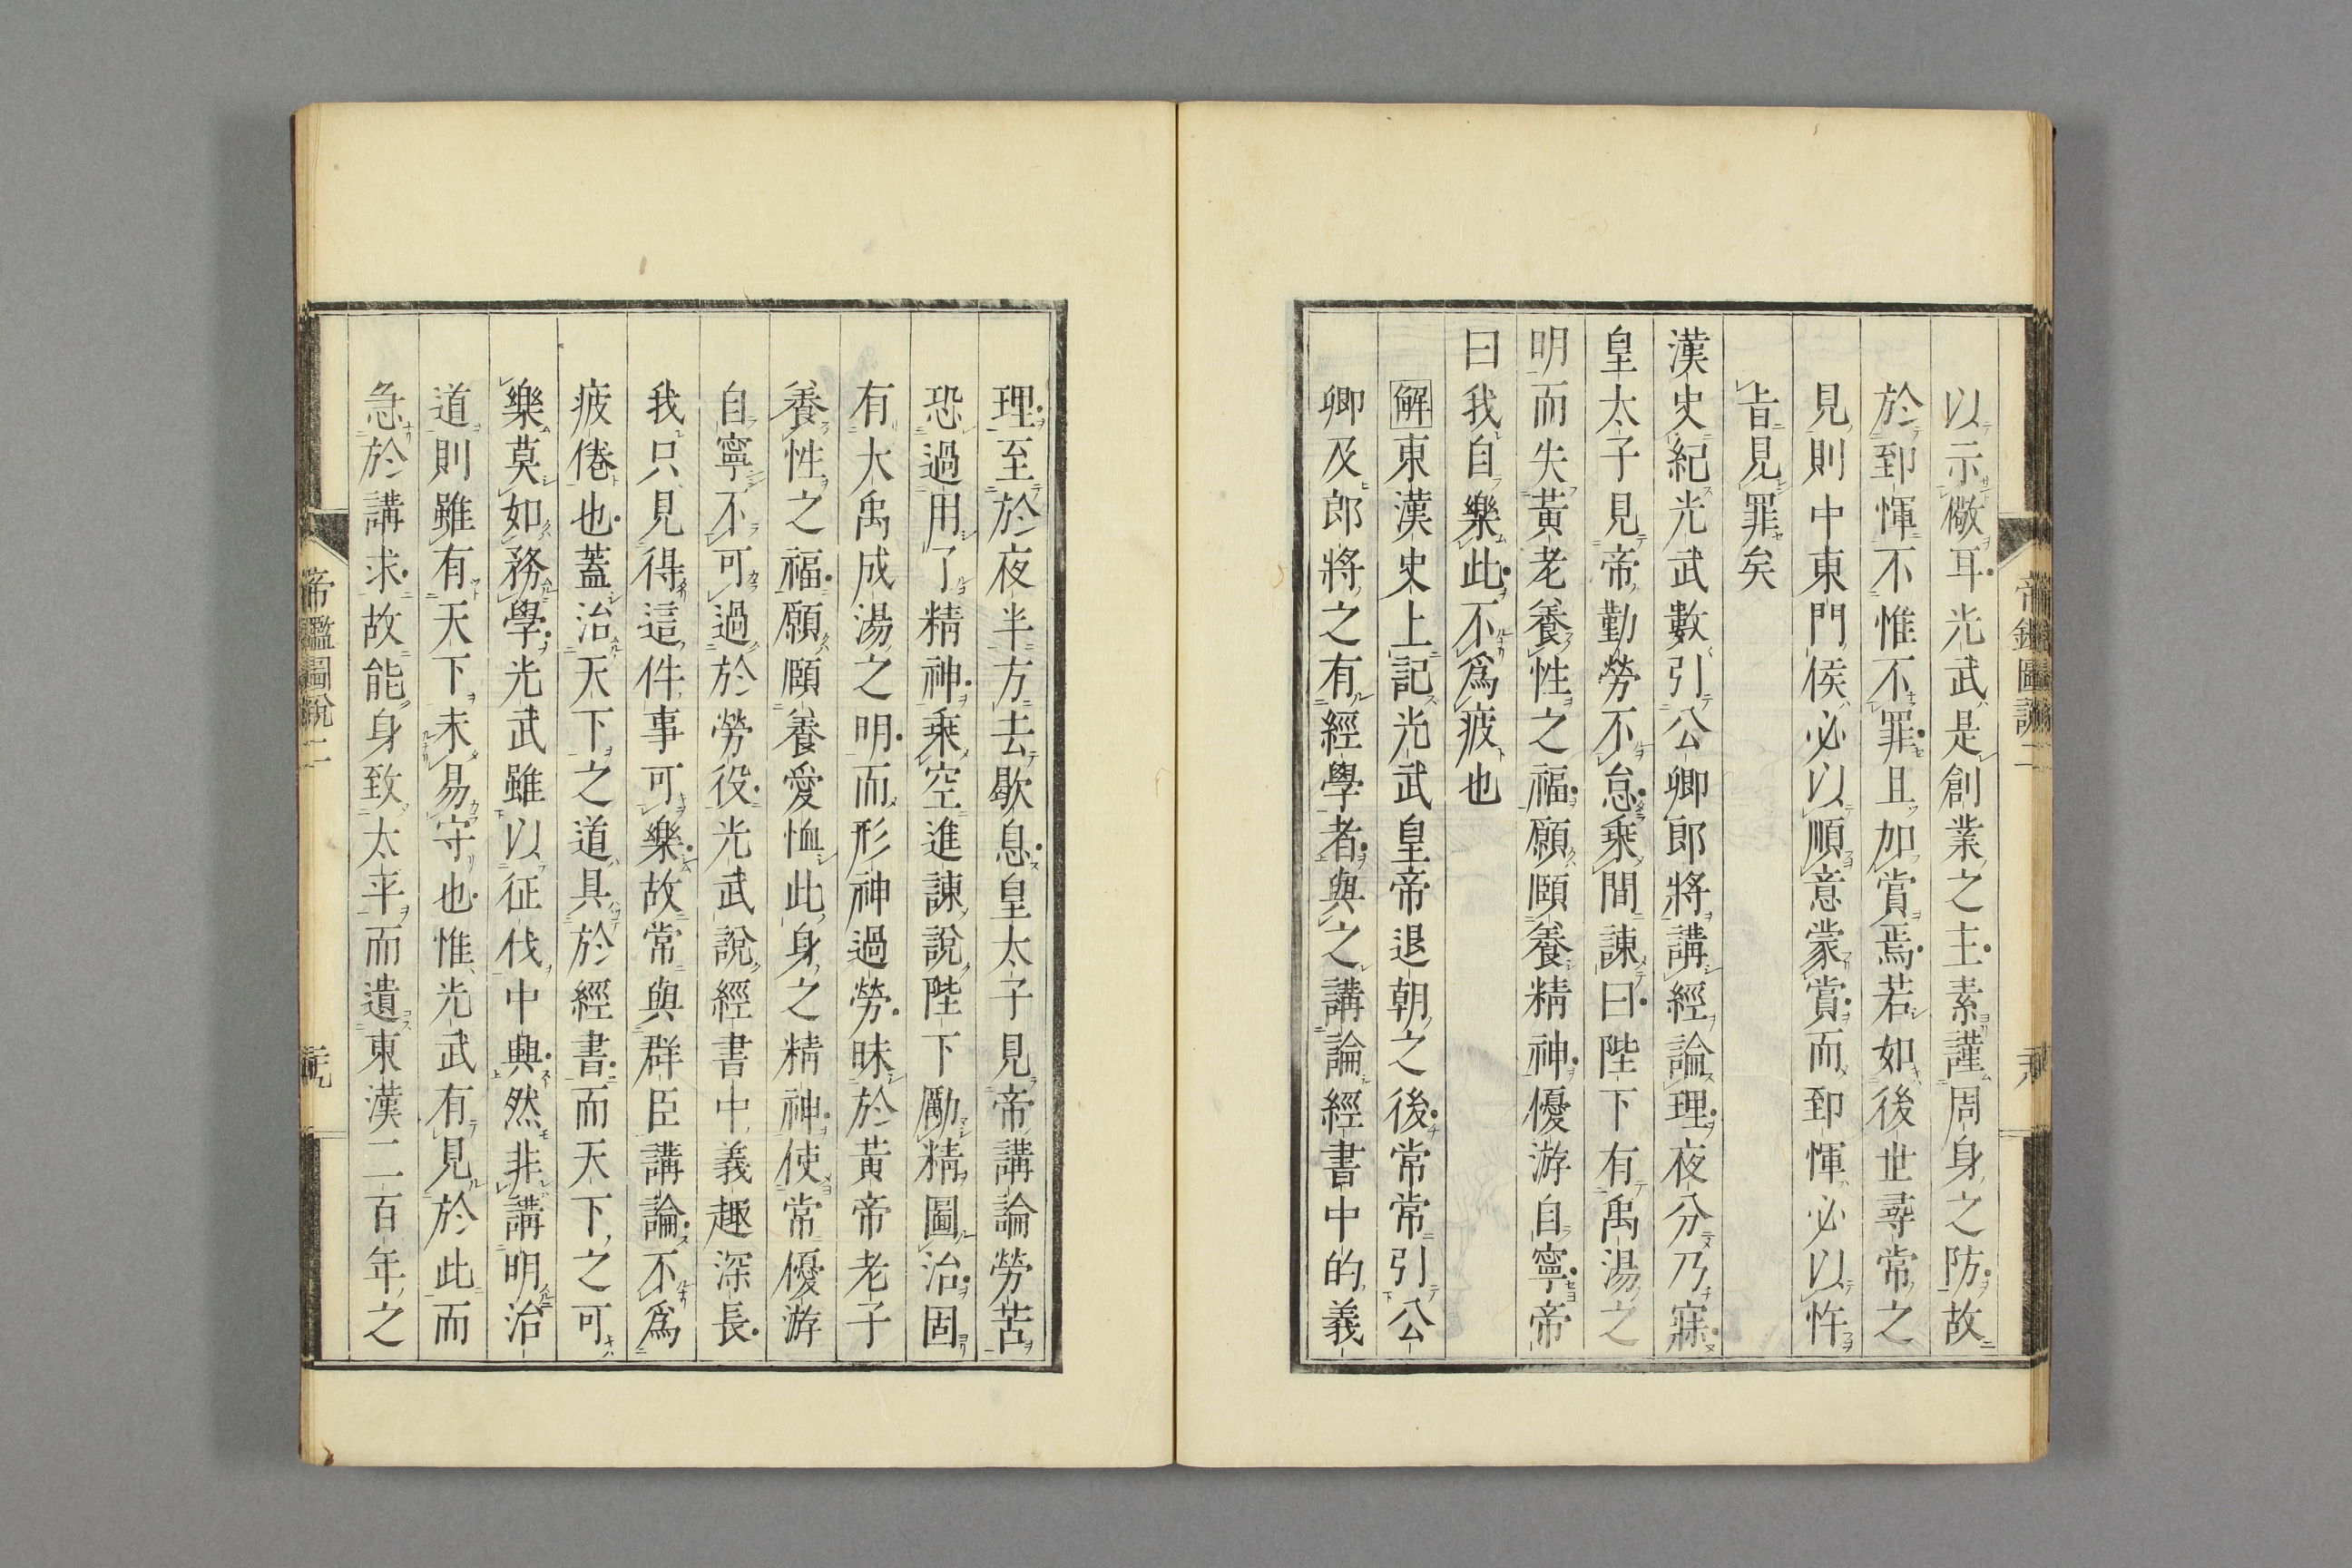 以示儆耳光武是創業之主素謹周身之防故
於郅惲不惟不罪且加賞焉若如後世尋常之
見則中東門侯必以順意蒙賞而郅惲必以忤
旨見罪矣
漢史紀光武數引公卿郎將講經論理夜分乃寐
皇太子見帝勤勞不怠乘間諫曰陛下有禹湯之
明而失黃老養性之福願頤養精神優游自寧帝
曰我自樂此不爲疲也
解東漢史上記光武皇帝退朝之後常常引公
卿及郎將之有經學者與之講論經書中的義
理至於夜半方去歇息皇太子見帝講論勞苦
恐過用了精神乘空進諫說陛下勵精圖治固
有大禹成湯之明而形神過勞昧於黃帝老子
養性之福願頤養愛恤此身之精神使常優游
自寧不可過於勞役光武說經書中義趣深長
我只見得這件事可樂故常與群臣講論不爲
疲倦也蓋治天下之道具於經書而天下之可
樂莫如務學光武雖以征伐中興然非講明治
道則雖有天下未易守也惟光武有見於此而
急於講求故能身致太平而遺東漢二百年之
帝鑑圖說二